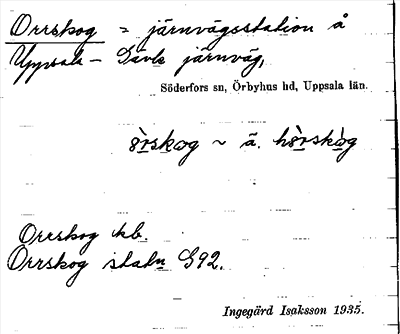 Orrskog = järnvägsstation å
Uppsala - Gävle järnväg,
Söderfors sn, Örbyhus hd, Uppsala län.
òrskog ~ ä. hòrskòg
Orrskog kb
Orrskog statn G92.
Ingegärd Isaksson 1935.